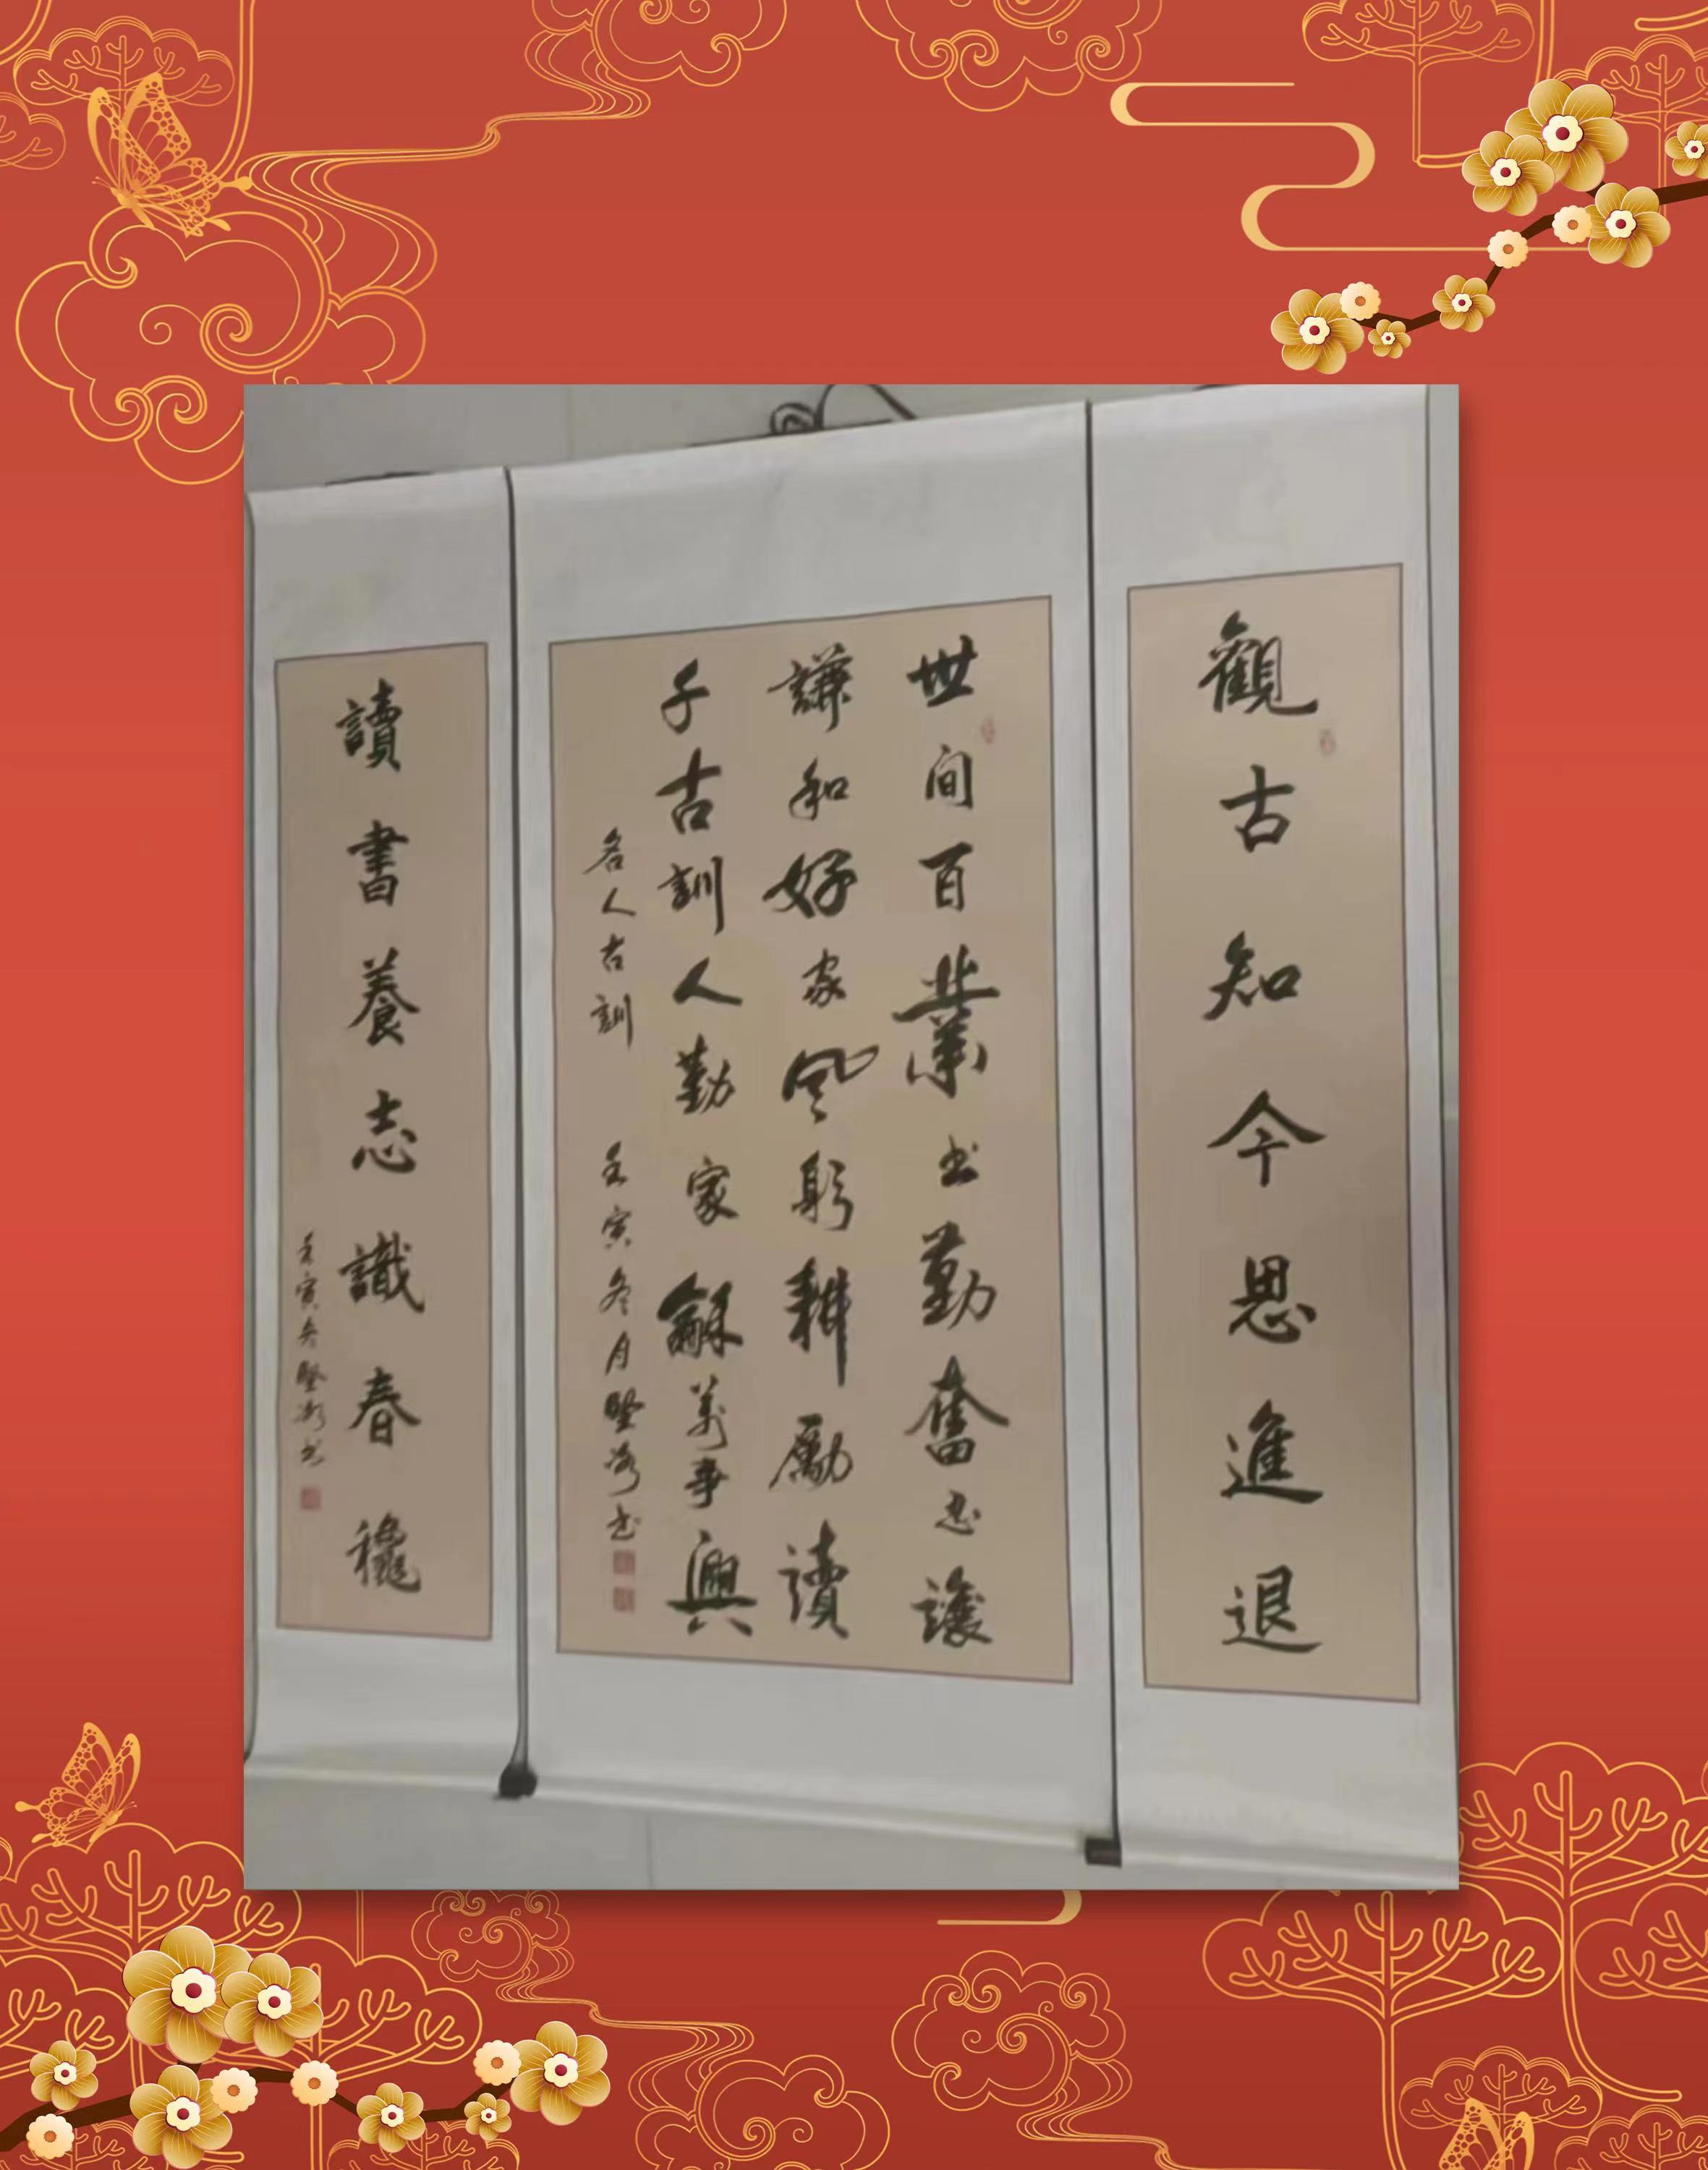 觀古知今思進退
世间百業出勤奮忍讓
謙和好家風躬耕勵讀
千古訓人勤家龢萬事興
名人古訓 壬寅冬月堅书
讀書養志識春穐
壬寅冬堅书